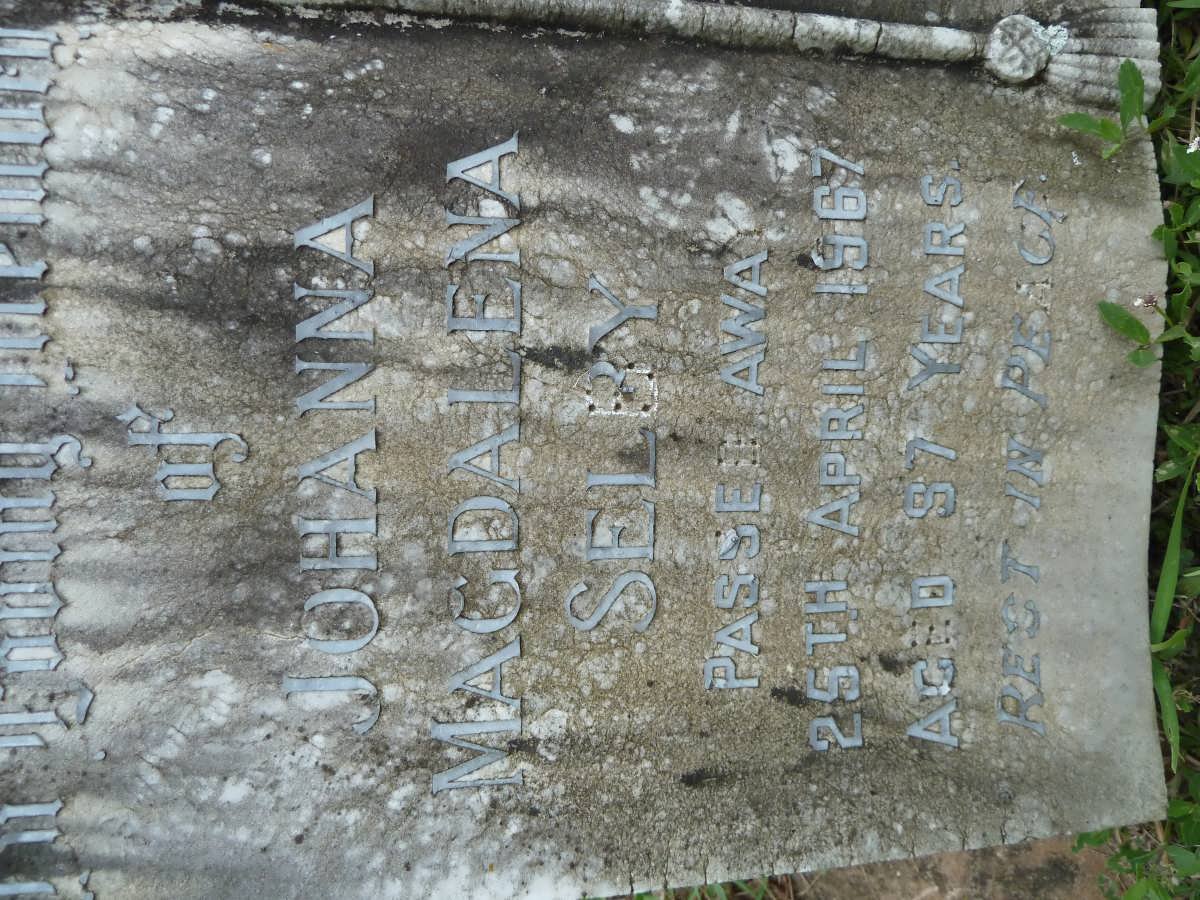 of
JOHANNA
MAGDALENA
SELBY
PASSED AWA
25TH APRIL 1967
AGED 87 YEARS.
REST IN PEACE.